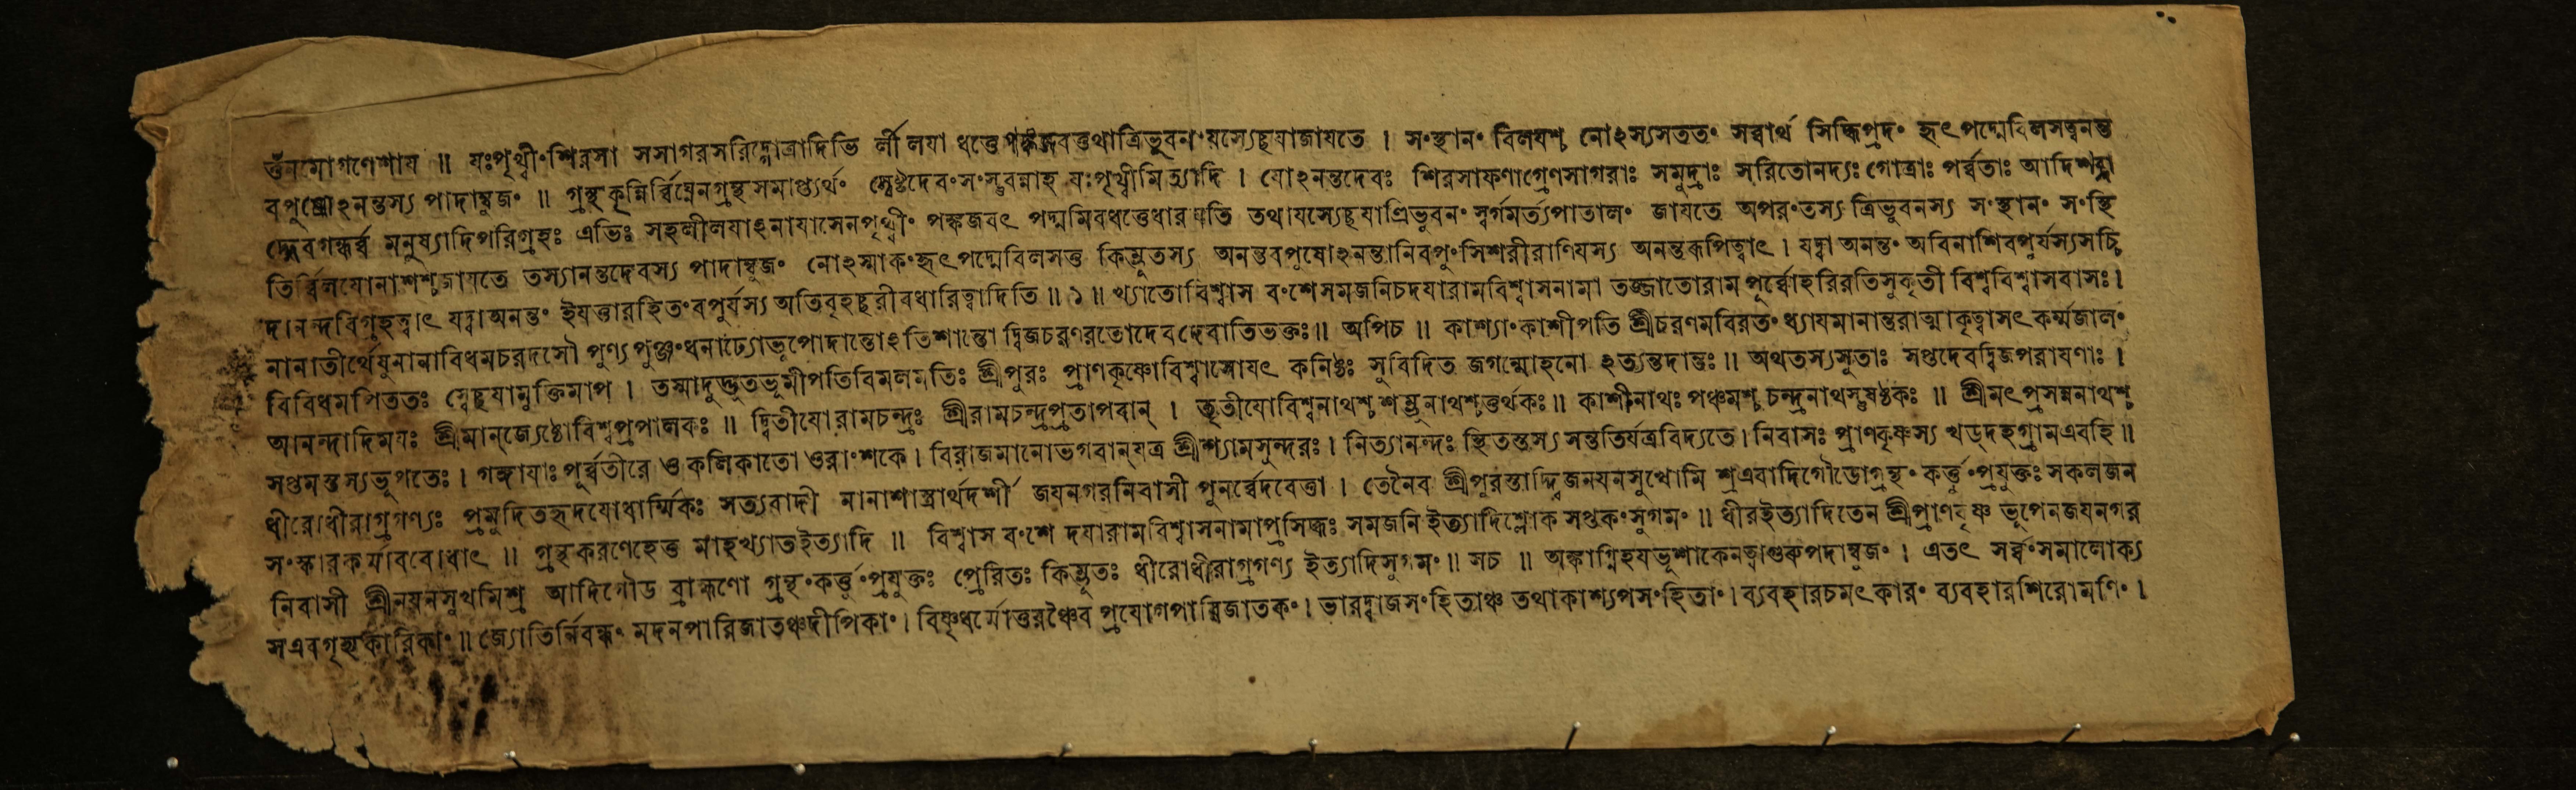 ওঁনমোগণেশায ॥ যঃপৃথ্বীং শিরসা সসাগরসরিদ্গোত্রাদিভি র্লীলযা ধত্তে পঙ্কজবত্তথাত্রিভুবনং যস্যেচ্ছযাজাযতে । সংস্থানং বিলযশ্চ নোঽস্যসততং সর্ব্বার্থ সিদ্ধিপ্রদং হৃৎপদ্মেবিলসত্বনন্ত
বপুষোঽনন্তস্য পাদাম্বুজং ॥ গ্রন্থকৃন্নির্ব্বিঘ্নেনগ্রন্থসমাপ্ত্যর্থং স্বেষ্টদেবং সংস্তুবন্নাহ যঃপৃথ্বীমিত্যাদি । যোঽনন্তদেবঃ শিরসাফণাগ্রেণসাগরাঃ সমুদ্রাঃ সরিতোনদ্যঃ গোত্রাঃ পর্ব্বতাঃ আদিশব্দা
দ্দেবগন্ধর্ব্ব মনুষ্যাদিপরিগ্রহঃ এভিঃ সহলীলযাঽনাযাসেনপৃথ্বীং পঙ্কজবৎ পদ্মমিবধত্তেধারযতি তথাযস্যেচ্ছযাত্রিভুবনং স্বর্গমর্ত্যপাতালং জাযতে অপরং তস্য ত্রিভুবনস্য সংস্থানং সংস্থি
তির্ব্বিলযোনাশশ্চজাযতে তস্যানন্তদেবস্য পাদাম্বুজং নোঽস্মাকং হৃৎপদ্মেবিলসতু কিম্ভূতস্য অনন্তবপুষোঽনন্তানিবপুংসিশরীরাণিযস্য অনন্তরূপিত্বাৎ । যদ্বা অনন্তং অবিনাশিবপুর্যস্যসচ্চি
দানন্দবিগ্রহত্বাৎ যদ্বাঅনন্তং ইযত্তারহিতং বপুর্যস্য অতিবৃহচ্ছরীরধারিত্বাদিতি ॥ ১ ॥ খ্যাতোবিশ্বাস বংশেসমজনিচদযারামবিশ্বাসনামা তজ্জাতোরাম পূর্ব্বোহরিরতিসুকৃতী বিশ্ববিশ্বাসবাসঃ ।
নানাতীর্থেষুনানাবিধমচরদসৌ পুণ্যপুঞ্জং ধনাঢ্যোভূপোদান্তোঽতিশান্তো দ্বিজচরণরতোদেবদেবাতিভক্তঃ ॥ অপিচ ॥ কাশ্যাং কাশীপতি শ্রীচরণমবিরতং ধ্যাযমানান্তরাত্মাকৃত্বাসৎ কর্ম্মজালং
বিবিধমপিততঃ স্বেচ্ছযামুক্তিমাপ । তস্মাদুদ্ভুতভূমীপতিবিমলমতিঃ শ্রীপুরঃ প্রাণকৃষ্ণোবিশ্বাসোযৎ কনিষ্ঠঃ সুবিদিত জগন্মোহনো ঽত্যন্তদান্তঃ ॥ অথতস্যসুতাঃ সপ্তদেবদ্বিজপরাযণাঃ ।
আনন্দাদিমযঃ শ্রীমান্‌জ্যেষ্ঠোবিশ্বপ্রপালকঃ ॥ দ্বিতীযোরামচন্দ্রঃ শ্রীরামচন্দ্রপ্রতাপবান্ । তৃতীযোবিশ্বনাথশ্চ শম্ভুনাথশ্চতুর্থকঃ ॥ কাশীনাথঃ পঞ্চমশ্চ চন্দ্রনাথস্তুষষ্ঠকঃ ॥ শ্রীমৎ প্রসন্ননাথশ্চ
সপ্তমস্তস্যভূপতেঃ । গঙ্গাযাঃ পূর্ব্বতীরে ও কলিকাতো ওরাংশকে । বিরাজমানোভগবান্‌যত্র শ্রীশ্যামসুন্দরঃ । নিত্যানন্দঃ স্থিতস্তস্য সন্ততির্যত্রবিদ্যতে । নিবাসঃ প্রাণকৃষ্ণস্য খড্‌দহগ্রামএবহি ॥
ধীরোধীরাগ্রগণ্যঃ প্রমুদিতহৃদযোধার্ম্মিকঃ সত্যবাদী নানাশাস্ত্রার্থদর্শী জযনগরনিবাসী পুনর্ব্বেদবেত্তা । তেনৈব শ্রীপুরস্তাদ্দ্বিজনযনসুখোমি শ্রএবাদিগৌডোগ্রন্থং কর্ত্তুং প্রযুক্তঃ সকলজন
সংস্কারকর্মাববোধাৎ ॥ গ্রন্থকরণেহেতু মাহখ্যাতইত্যাদি ॥ বিশ্বাস বংশে দযারামবিশ্বাসনামাপ্রসিদ্ধঃ সমজনি ইত্যাদিশ্লোক সপ্তকং সুগমং ॥ ধীরইত্যাদিতেন শ্রীপ্রাণকৃষ্ণ ভূপেনজযনগর
নিবাসী শ্রীনযনসুখমিশ্র আদিগৌড ব্রাহ্মণো গ্রন্থং কর্ত্তুং প্রযুক্তঃ প্রেরিতঃ কিম্ভূতঃ ধীরোধীরাগ্রগণ্য ইত্যাদিসুগমং ॥ সচ ॥ অঙ্কাগ্নিহযভূশাকেনত্বাগুরুপদাম্বুজং । এতৎ সর্ব্বং সমালোক্য
সএবগৃহ্যকারিকাং ॥ জ্যোতির্নিবন্ধং মদনপারিজাতঞ্চদীপিকাং । বিষ্ণুধর্ম্মোত্তরঞ্চৈব প্রযোগপারিজাতকং । ভারদ্বাজসংহিতাঞ্চ তথাকাশ্যপসংহিতাং । ব্যবহারচমৎকারং ব্যবহারশিরোমণিং ।